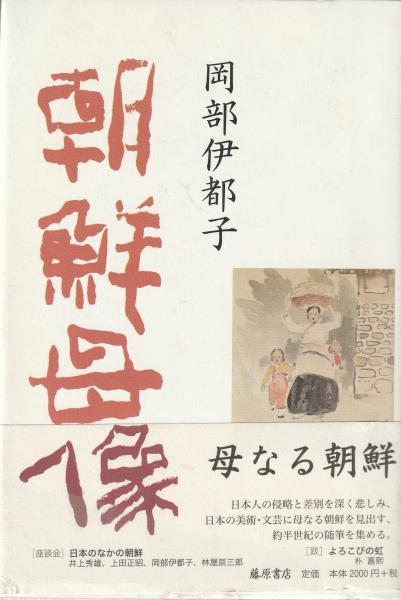 岡部伊都子
朝鮮母像
母なる朝鮮
日本人の侵略と差別を深く悲しみ、
日本の美術・文芸に母なる朝鮮を見出す、
約半世紀の随筆を集める。
[座談会] 日本のなかの朝鮮
井上秀雄、上田正昭、岡部伊都子、林屋辰三郎
[跋] よろこびの虹
朴菖熙
藤原書店 定価 本体2000円+税